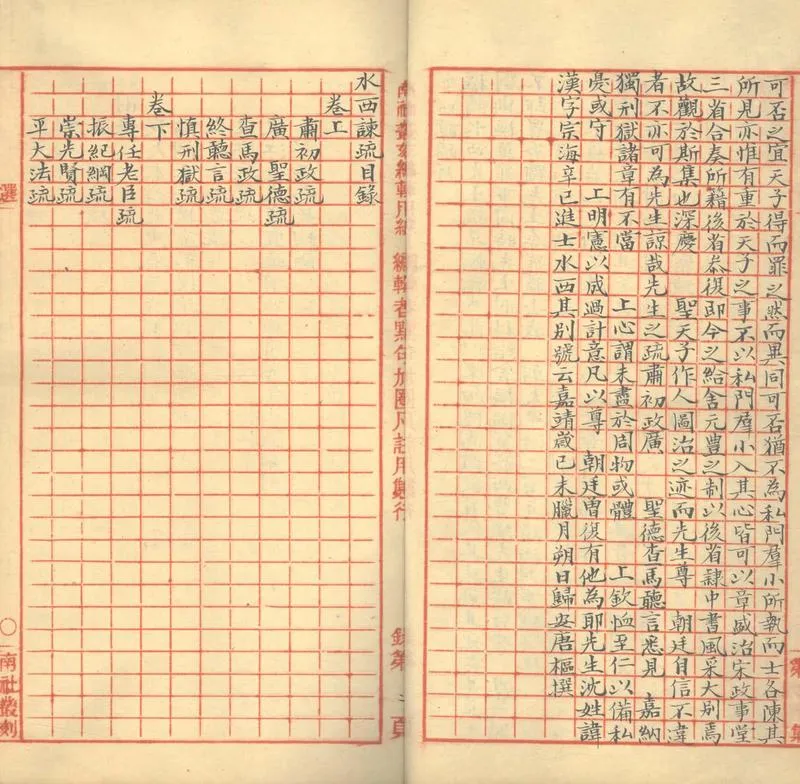 可否之宜天子得而罪之然而異同可否猶不為私門羣小所執而士各陳其
所見亦惟有重於天子之事不以私門羣小入其心皆可以章盛治宋政事堂
三省合奏所籍後省叅復即今之給舍元豊之制以後省隷中書風采大別焉
故觀於斯集也深慶　聖天子作人圖治之迹而先生尊　朝廷自信不諱
者不亦可為先生諒哉先生之疏肅初政廣　聖德查馬聽言悉見　嘉納
獨刑獄諸章有不當　上心謂未盡於周物或體　上欽恤至仁以備私
憂或守　上明憲以成過計意凡以尊　朝廷曽復有他為耶先生沈姓諱
漢字宗海辛巳進士水西其别號云嘉靖歲己未臘月朔日歸安唐樞撰
水西諫疏目錄
卷上
肅初政疏
廣　聖德疏
查馬政疏
終聽言疏
慎刑獄疏
卷下
專任老臣疏
振紀綱疏
崇先賢疏
平大法疏
南社叢刻編輯用紙　編輯者點句加圈凡註用雙行
頁
選
南社叢刻
集